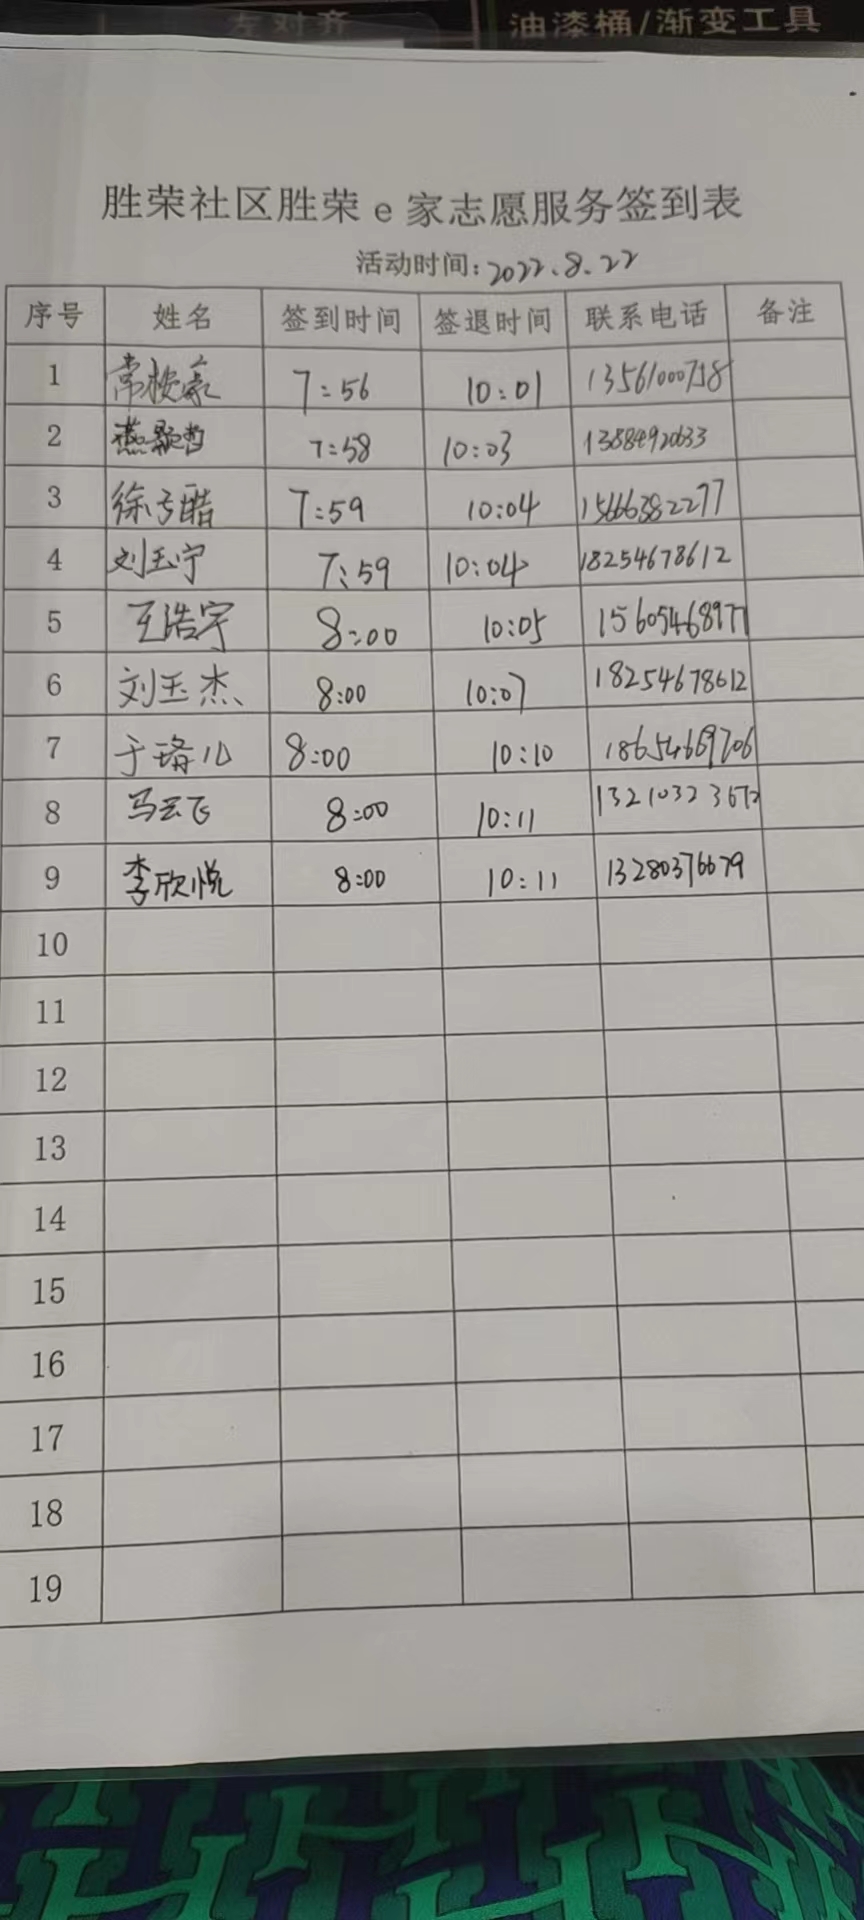 左对齐 油漆桶/渐变工具
胜荣社区胜荣e家志愿服务签到表
活动时间:2022.8.22
序号 姓名 签到时间 签退时间 联系电话 备注
1 7:56 10:01
2 7:58 10:03 13884920633
3 7:59 10:04 15666382277
4 刘玉宁 7:59 10:04 18254678612
5 王浩宇 8:00 10:05 15605468977
6 刘玉杰 8:00 10:07 18254678612
7 8:00 10:10 18654669206
8 马云飞 8:00 10:11 13210323672
9 李欣悦 8:00 10:11 13280376679
10
11
12
13
14
15
16
17
18
19